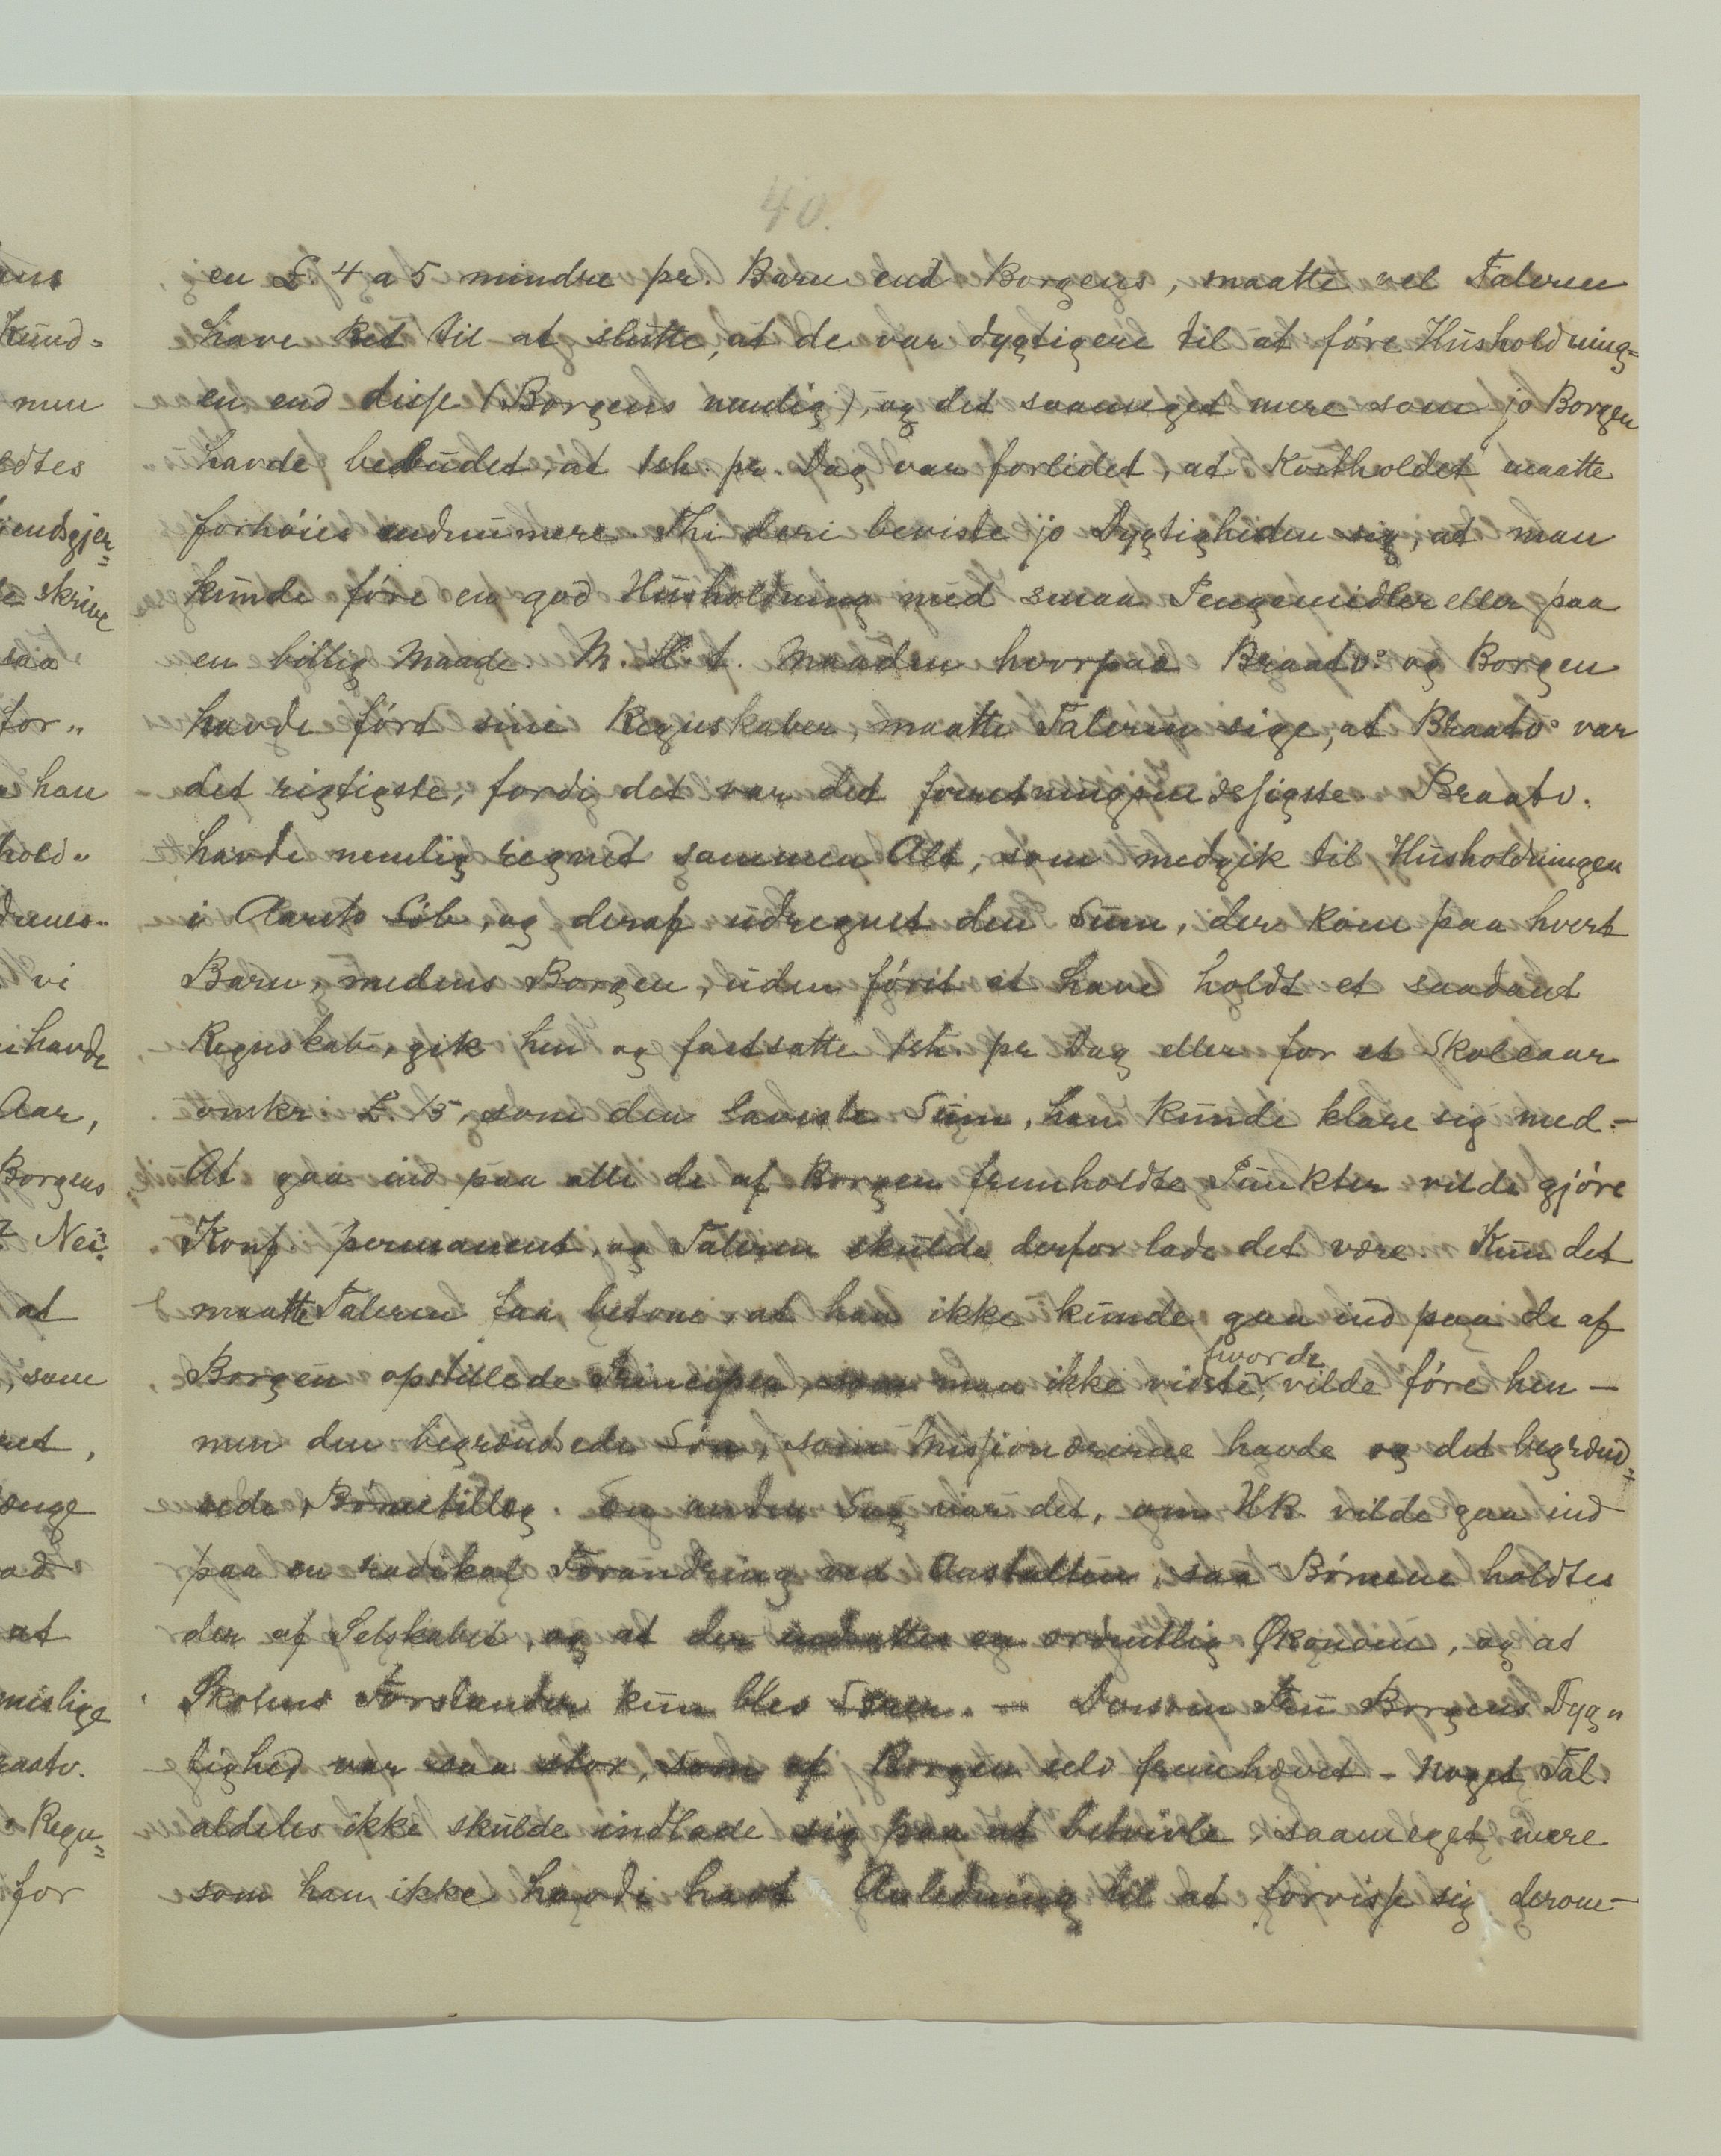 40.
en £ 4 a 5 mindre pr. Barn end Borgens, maatte vel Taleren
have Ret til at slutte, at de var dygtigere til at føre Husholdning=
en end disse (Borgens nemlig), og det saameget mere som jo Borgen
havde bebudet, at 1sh. pr. Dag var forlidet, at Kostholdet maatte
forhøies endnu mere. Thi deri beviste jo Dygtigheden sig, at man
kunde føre en god Husholdning med smaa Pengemidler eller paa
en billig Maade M. H. t. Maaden hvorpaa Braatv. og Borgen
havde ført sine Regnskaber, maatte Taleren sige, at Braatv. var
det rigtigste, fordi det var det forretningsmæssigste Braatv.
havde nemlig regnet sammen Alt, som medgik til Husholdningen
i Aarets Løb, og deraf udregnet den Sum, der kom paa hvert
Barn, medens Borgen, uden først at have holdt et saadant
Regnskab, gik hen og fastsatte 1sh. pr Dag eller for et Skoleaar
omkr £. 15, som den laveste Sum, han kunde klare sig med. –
At gaa ind paa alle de af Borgen fremholdte Punkter vilde gjøre
Konf. permanent, og Taleren skulde derfor lade det være. Kun det
maatte Taleren faa betone, at han ikke kunde gaa ind paa de af
Borgen opstillede Principer, som man ikke vidste, hvor de vilde føre hen –
men den begrændsede Løn, som Missionærerne havde og det begrænd=
sede Børnetillæg. En anden Sag var det, om HB. vilde gaa ind
paa en radikal Forandring ved Anstalten, saa Børnene holdtes
der af Selskabet, og at der indsattes en ordentlig Økonom, og at
Skolens Forstander kun blev Lærer. – Dersom Fru Borgens Dyg„
tighed var saa stor, som af Borgen selv fremhævet – noget Tal.
aldeles ikke skulde indlade sig paa at betvivle, saameget mere
som han ikke havde havt Anledning til at forvisse sig derom –